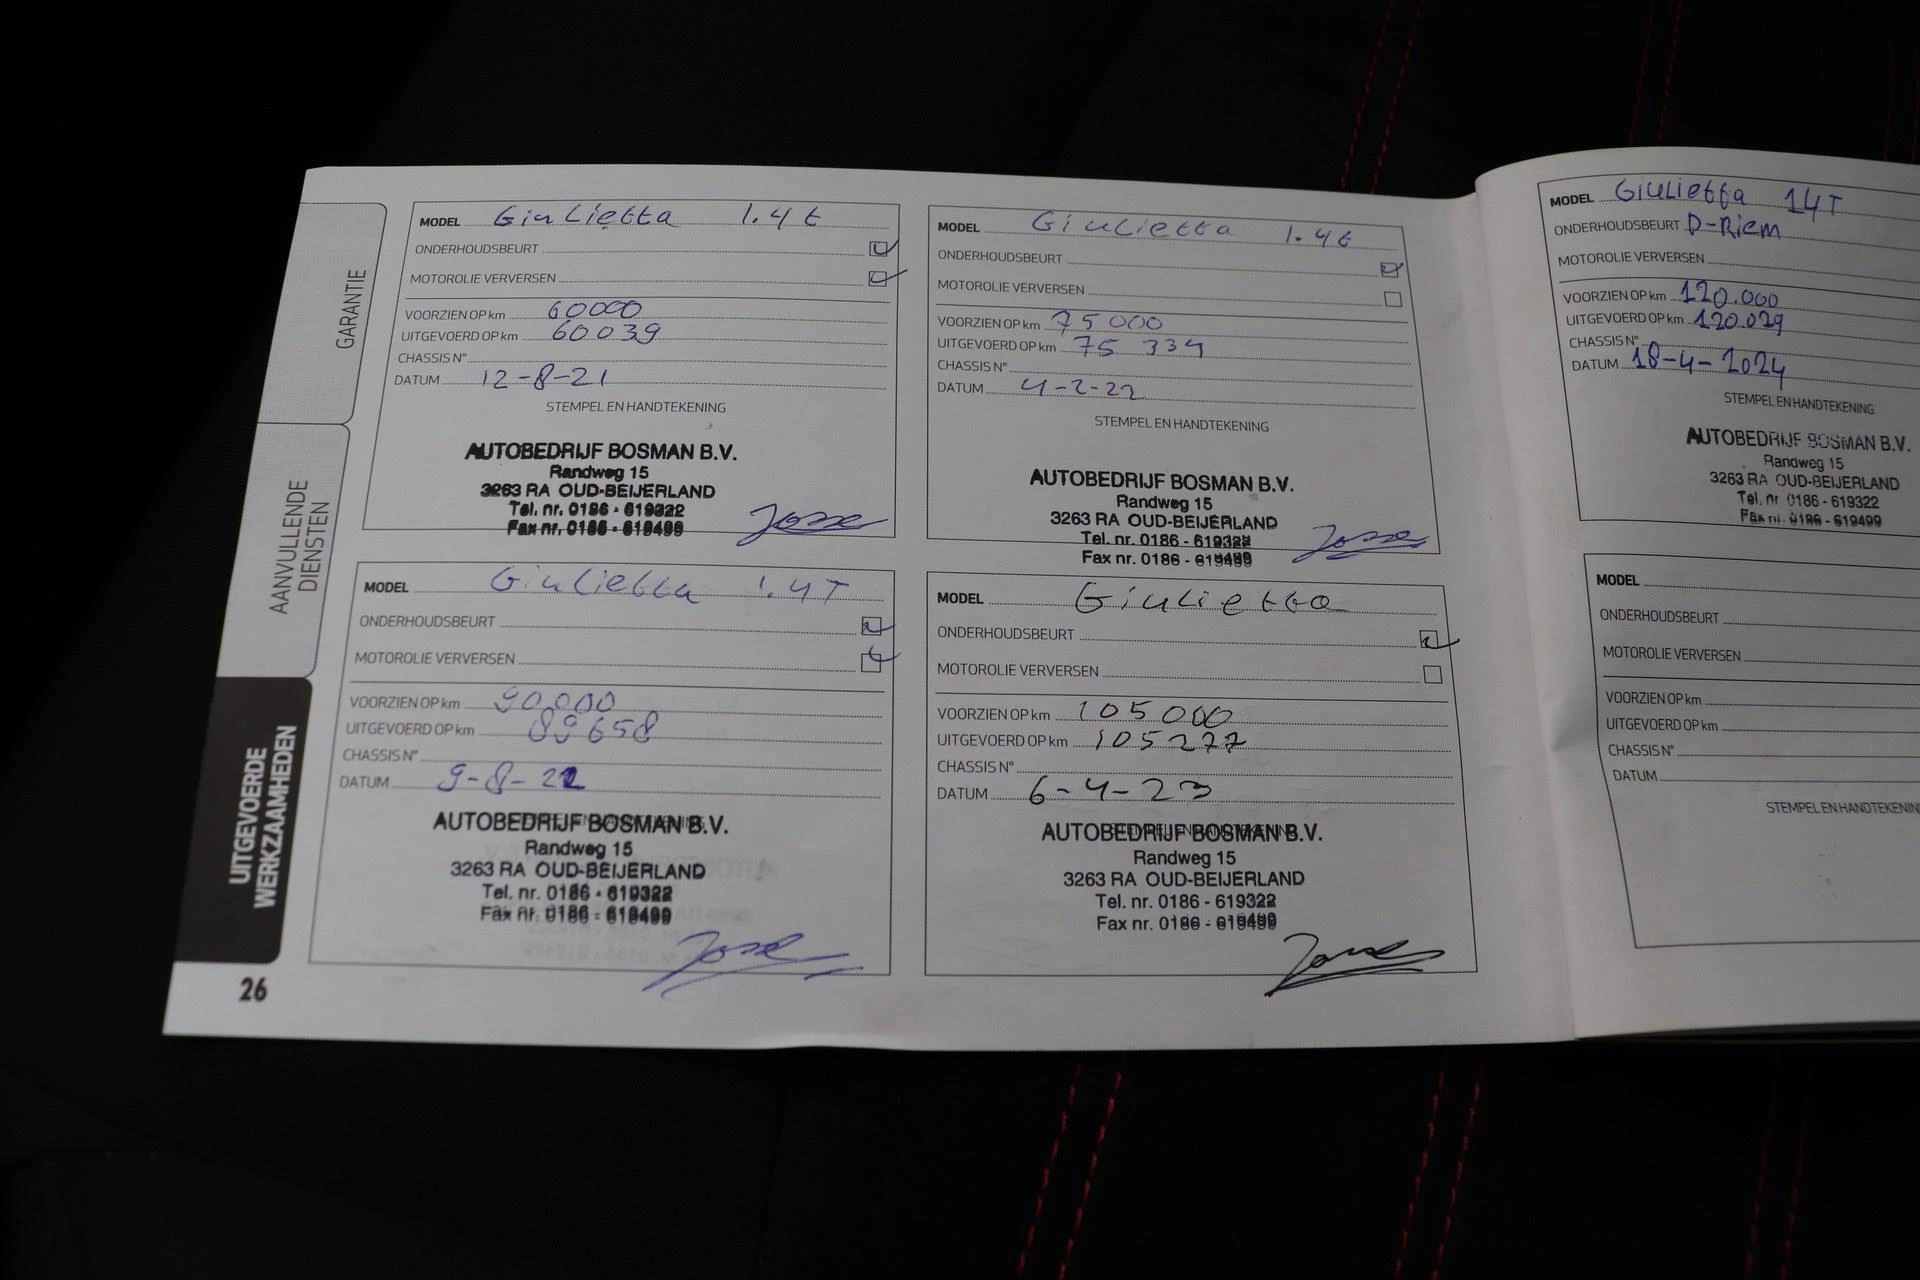 GARANTIE
AANVULLENDE
DIENSTEN
UITGEVOERDE
WERKZAAMHEDEN
26
MODEL Giulietta 1.4 t
ONDERHOUDSBEURT
MOTOROLIE VERVERSEN
VOORZIEN OP km 60000
UITGEVOERD OP km 60039
CHASSIS N°
DATUM 12-8-21
STEMPEL EN HANDTEKENING
AUTOBEDRIJF BOSMAN B.V.
Randweg 15
3263 RA OUD-BEIJERLAND
Tel. nr. 0186 - 619322
Fax nr. 0186 - 619499
MODEL Giulietta 1.4 t
ONDERHOUDSBEURT
MOTOROLIE VERVERSEN
VOORZIEN OP km 75000
UITGEVOERD OP km 75 334
CHASSIS N°
DATUM 4-2-22
STEMPEL EN HANDTEKENING
AUTOBEDRIJF BOSMAN B.V.
Randweg 15
3263 RA OUD-BEIJERLAND
Tel. nr. 0186 - 619322
Fax nr. 0186 - 619499
MODEL Giulietta 1.4T
ONDERHOUDSBEURT
MOTOROLIE VERVERSEN
VOORZIEN OP km 90.000
UITGEVOERD OP km 89658
CHASSIS N°
DATUM 9-8-22
AUTOBEDRIJF BOSMAN B.V.
Randweg 15
3263 RA OUD-BEIJERLAND
Tel. nr. 0186 - 619322
Fax nr. 0186 - 619499
MODEL Giulietta
ONDERHOUDSBEURT
MOTOROLIE VERVERSEN
VOORZIEN OP km 105000
UITGEVOERD OP km 105277
CHASSIS N°
DATUM 6-4-23
STEMPEL EN HANDTEKENING
AUTOBEDRIJF BOSMAN B.V.
Randweg 15
3263 RA OUD-BEIJERLAND
Tel. nr. 0186 - 619322
Fax nr. 0186 - 619499
MODEL Giulietta 14T
ONDERHOUDSBEURT D-Riem
MOTOROLIE VERVERSEN
VOORZIEN OP km 120.000
UITGEVOERD OP km 120.029
CHASSIS N°
DATUM 18-4-2024
STEMPEL EN HANDTEKENING
AUTOBEDRIJF BOSMAN B.V.
Randweg 15
3263 RA OUD-BEIJERLAND
Tel. nr 0186 - 619322
Fax nr. 0186 - 619499
MODEL
ONDERHOUDSBEURT
MOTOROLIE VERVERSEN
VOORZIEN OP km
UITGEVOERD OP km
CHASSIS N°
DATUM
STEMPEL EN HANDTEKENIN